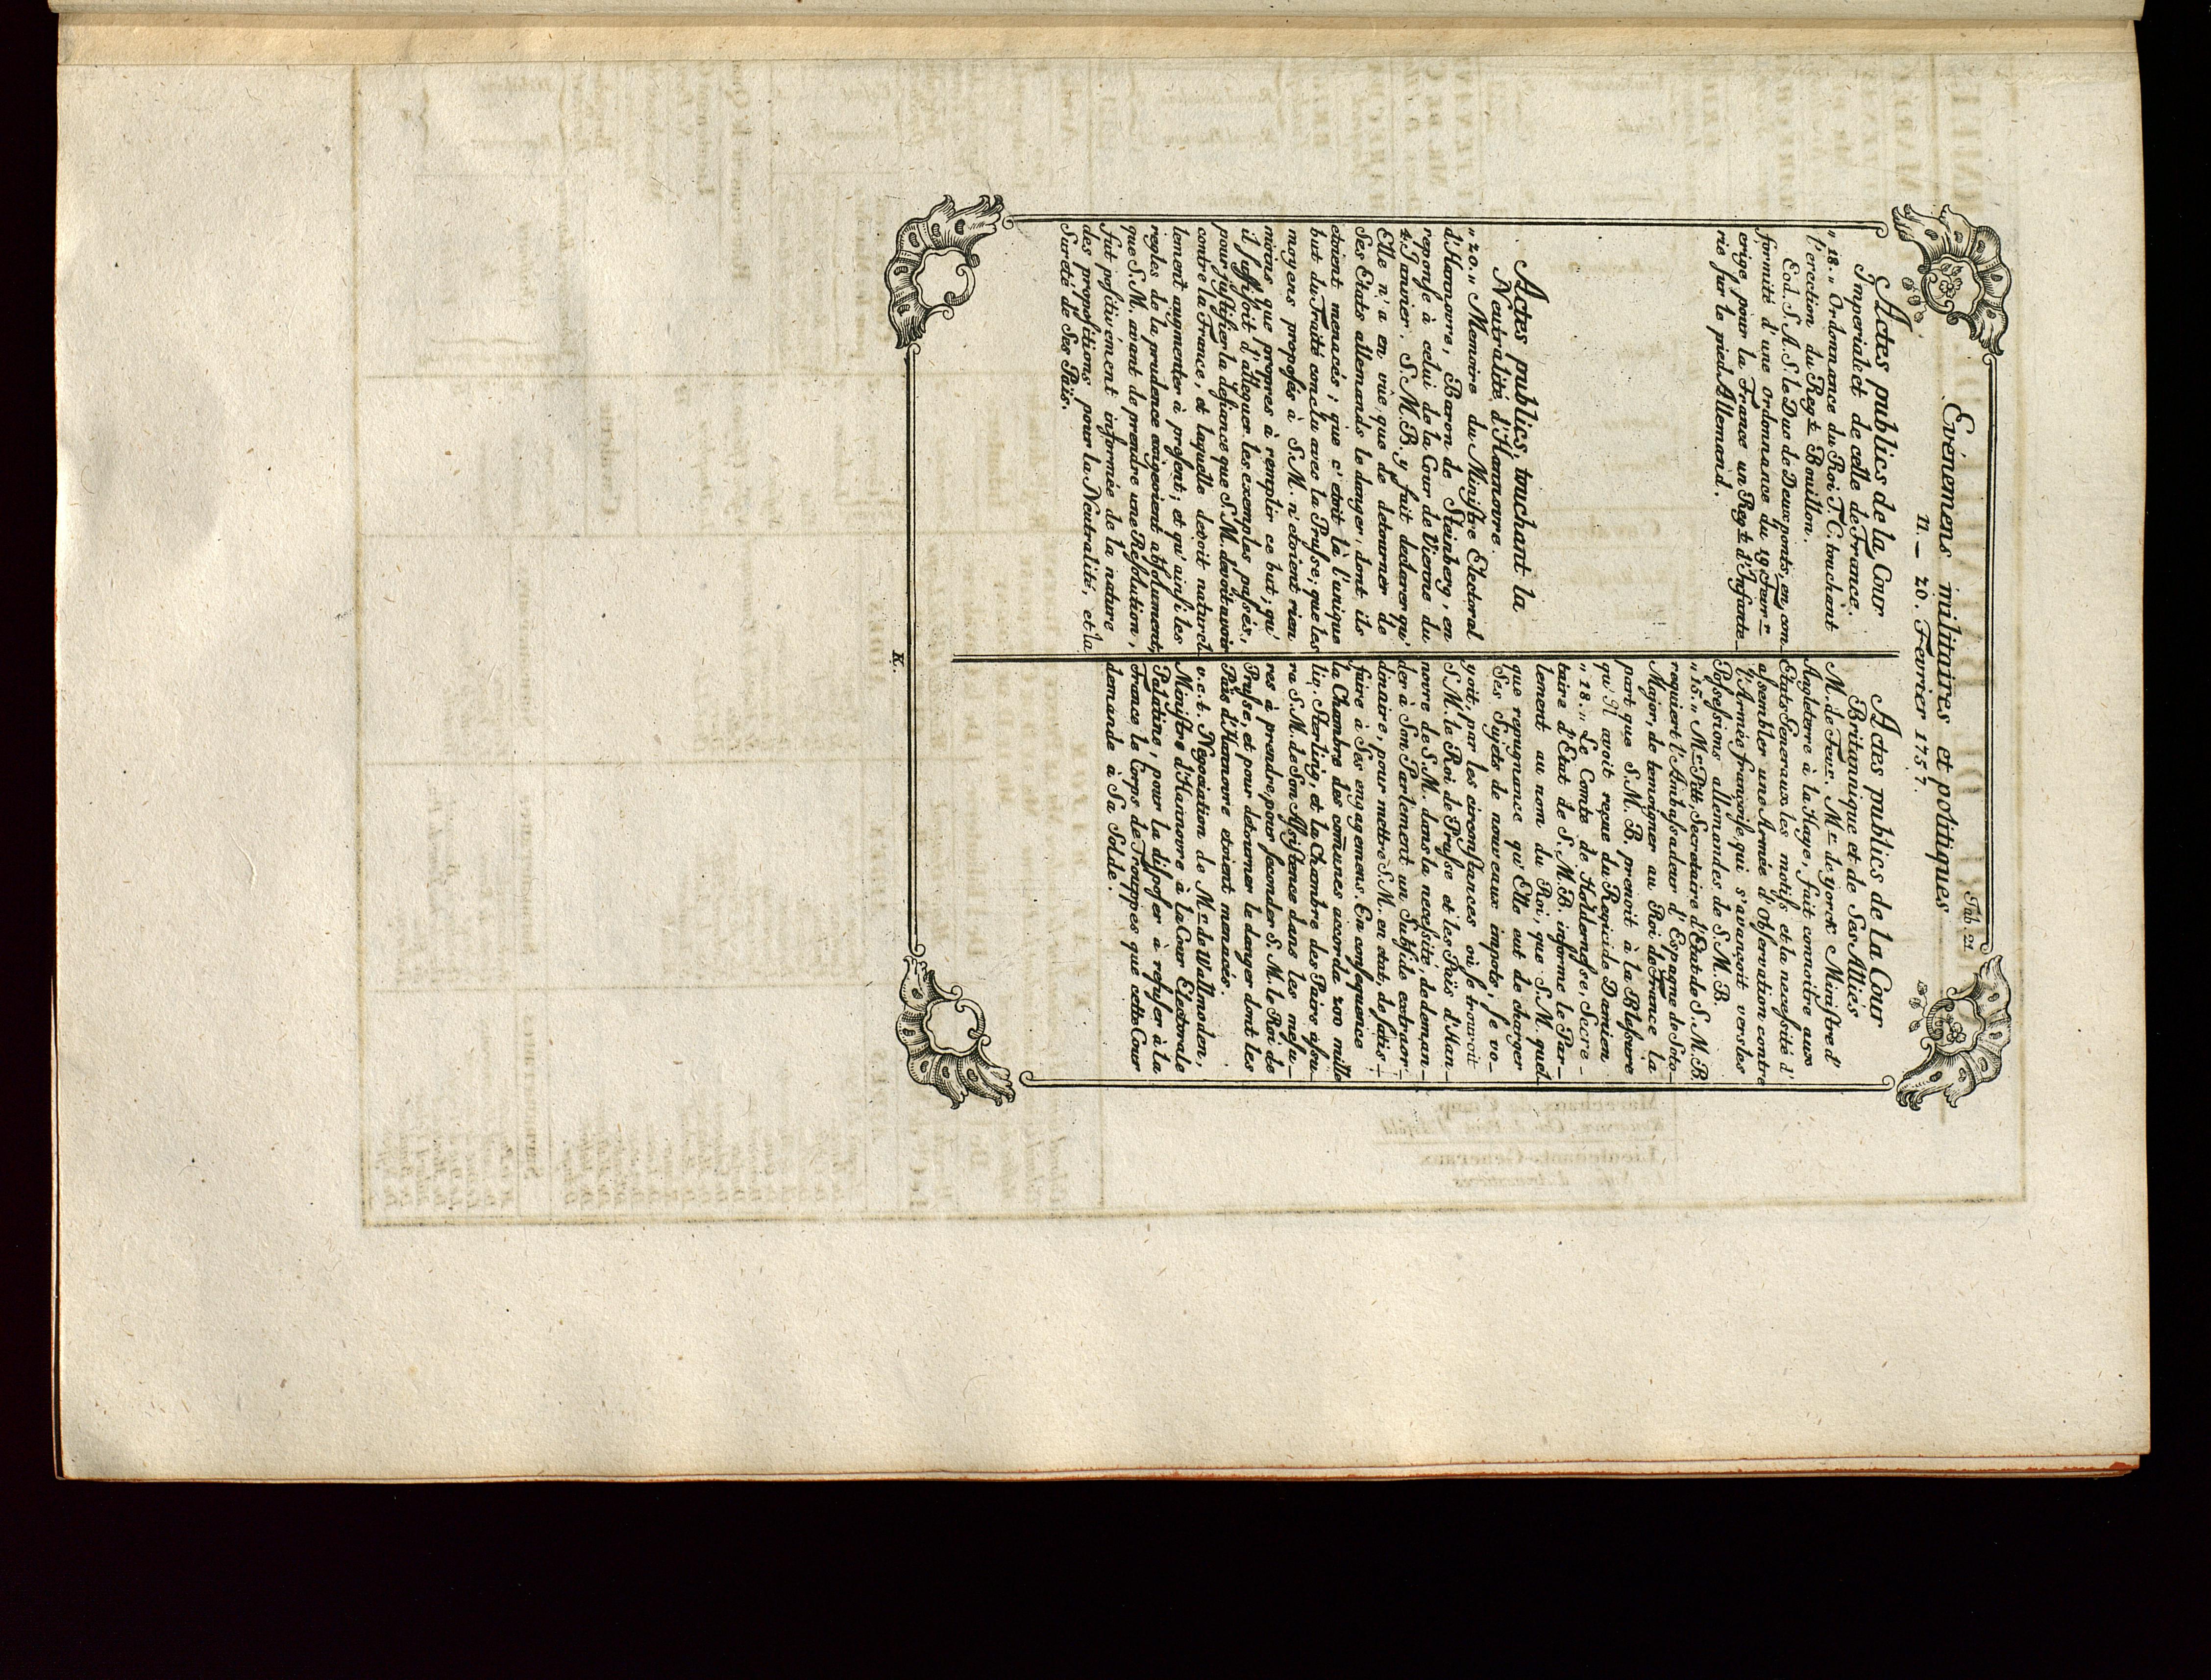 Tab. 21.
Evénemens militaires et politiques
11._ 20. Fevrier 1757.
Actes publics de la Cour
Imperiale et de celle de France.
„ 18. „ Ordonnance du Roi T. C. touchant
l'erection du Regt. Bouillon.
Eod. S. A. S. le Duc de Deuxponts, en con_
formité d'une Ordonnance du 19 Feurr._
erige, pour la France un Regt. d'Infante_
rie sur le pied Allemand.
Actes publics, touchant la
Neutralité d'Hannovre.
„ 20. „ Memoire du Ministre Electoral
d'Hannovre, Baron de Steinberg, en
reponse à celui de la Cour de Vienne du
4. Janvier. S. M. B. y fait declarer qu'
Elle n'a en vüe que de detourner de
Ses Etats allemands le danger, dont ils
etoient menacés; que c'etoit là l'unique
but du Traité conclu avec la Prusse; que les
moyens proposés à S. M. n'etoient rien
moins que propres à remplir ce but; qu'
il suffisoit d'alleguer les exemples passés,
pour justifier la defiance que S. M. devoit avoir
contre la France, et laquelle devoit naturel_
lement augmenter à present; et qu'ainsi les
regles de la prudence exigeoient absolument,
que S. M. avant de prendre une Resolution,
fut positivement informée de la nature
des propositions pour la Neutralité, et la
Sureté de Ses Païs.
Actes publics de la Cour
Britannique et de Ses Alliés
M. de Feur. Mr. de Yorck Ministre d'
Angleterre à la Haye, fait connoitre aux
Etats Generaux les motifs et la necessité d'
assembler une Armée d'Observation contre
l'Armée françoise, qui s'avançoit vers les
Possessions allemandes de S. M. B.
„ 15. „ Mr. Pitt, Secretaire d'Etat de S. M. B.
requiert l'Ambassadeur d'Espagne de Soto_
Major, de temoigner au Roi de France la
part que S. M. B. prenoit à la Blessure
qu'Il avoit reçue du Regicide Damien
„ 18. „ Le Comte de Holdernesse, Secre_
taire d'Etat de S. M. B. informe le Par_
lement au nom du Roi, que S. M. quel_
que repugnance qu'Elle eut de charger
Ses Sujets de nouveaux impots, se vo_
yoit, par les circonstances où se trouvoit
S. M. le Roi de Prusse et les Païs d'Han_
novre de S. M. dans la necessité, de deman_
der à Son Parlement un Subside extraor_
dinaire, pour mettre S. M. en etat, de satis_
faire à Ses engagemens. En consequence
la Chambre des comunes accorda 200 mille
liv. Sterling, et la Chambre des Pairs assu_
ra S. M. de Son Assistence dans les mesu_
res à prendre, pour seconder S. M. le Roi de
Prusse, et pour detourner le danger dont les
Païs d'Hannovre etoient menacés.
v. c. t. Negociation de Mr. de Wallmoden,
Ministre d'Hannovre à la Cour Electorale
Palatine, pour la disposer à refuser à la
France le Corps de Trouppes que cette Cour
demande à Sa Solde.
K.